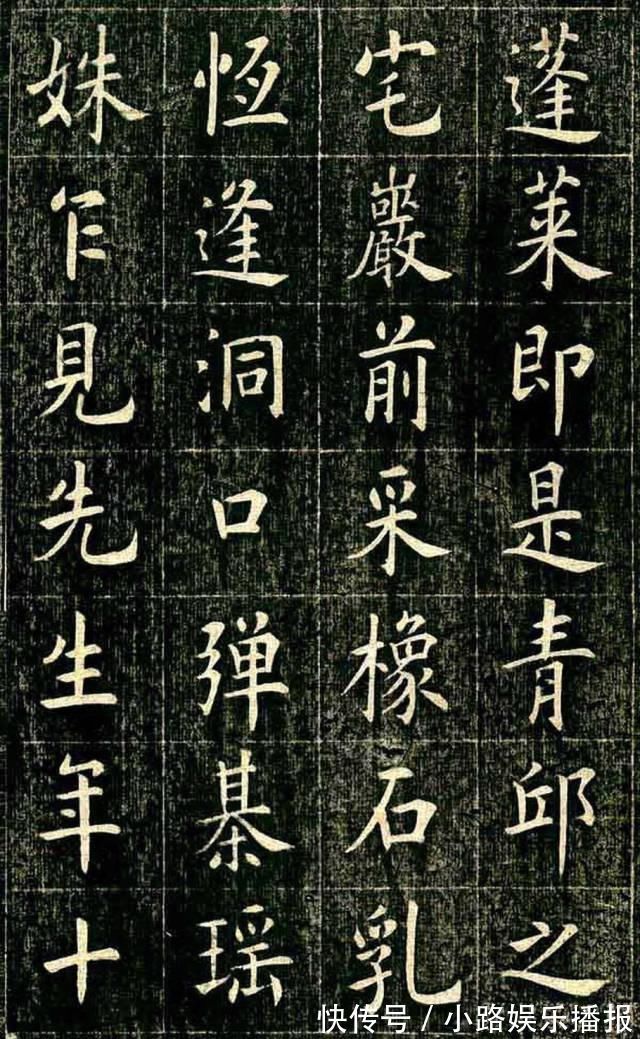 蓬莱即是青邱之
宅巖前采橡石乳
恆逢洞口弹棊瑶
姝乍見先生年十
快传号/小路娱乐播报